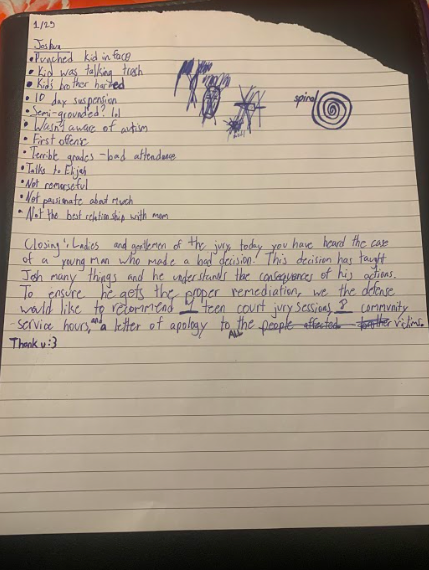 1/25
Joshua
• Punched kid in face
• Kid was talking trash
• Kid's brother
• 10 day suspension
• Semi-grounded? lol
• Wasn't aware of autism
• First offense
• Terrible grades - bad attendance
• Talks to Elijah
• Not remorseful
• Not passionate about much
• Not the best relationship with mom
spiral
Closing: Ladies and gentlemen of the jury, today you have heard the case
of a young man who made a bad decision. This decision has taught
Josh many things and he understands the consequences of his actions.
To ensure he gets the proper remediation, we the defense
would like to recommend 1 teen court jury sessions, 8 community
service hours, and a letter of apology to All the people affected victims.
Thank u :3